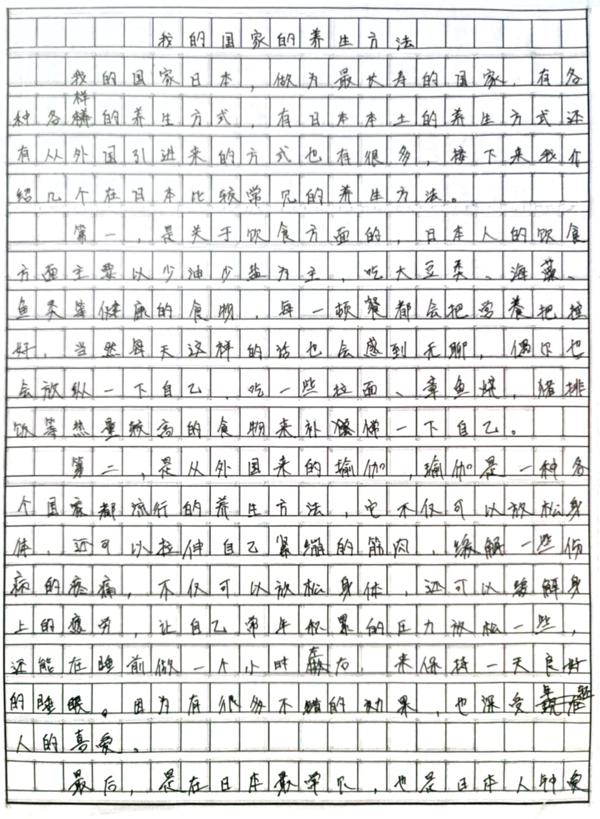 我的国家的养生方法
我的国家日本，做为最长寿的国家，有各
种各样的养生方式，有日本本土的养生方式还
有从外国引进来的方式也有很多，接下来我介
绍几个在日本比较常见的养生方法。
第一，是关于饮食方面的，日本人的饮食
方面主要以少油少盐为主，吃大豆类、海藻、
鱼类等健康的食物，每一顿餐都会把营养把控
好，当然每天这样的话也会感到无聊，偶尔也
会放纵一下自己，吃一些拉面、章鱼烧，猪排
饭等热量较高的食物来补强一下自己。
第二，是从外国来的瑜伽，瑜伽是一种各
个国家都流行的养生方法，它不仅可以放松身
体，还可以拉伸自己紧绷的筋肉，缓解一些伤
病的疼痛，不仅可以放松身体，还可以缓解身
上的疲劳，让自己常年积累的压力放松一些，
还能在睡前做一个小时左右，来保持一天良好
的睡眠。因为有很多不错的功果，也深受
人的喜爱。
最后，是在日本最常见，也是日本人钟爱